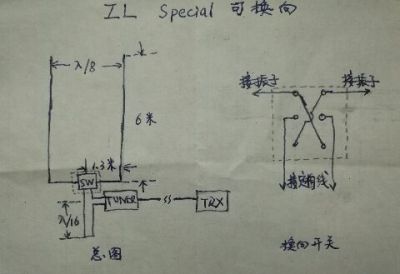 IL Special 可换向
λ/8
接振子
接振子
6米
1.3米
接定相线
SW
TUNER
TRX
λ/16
总图
换向开关